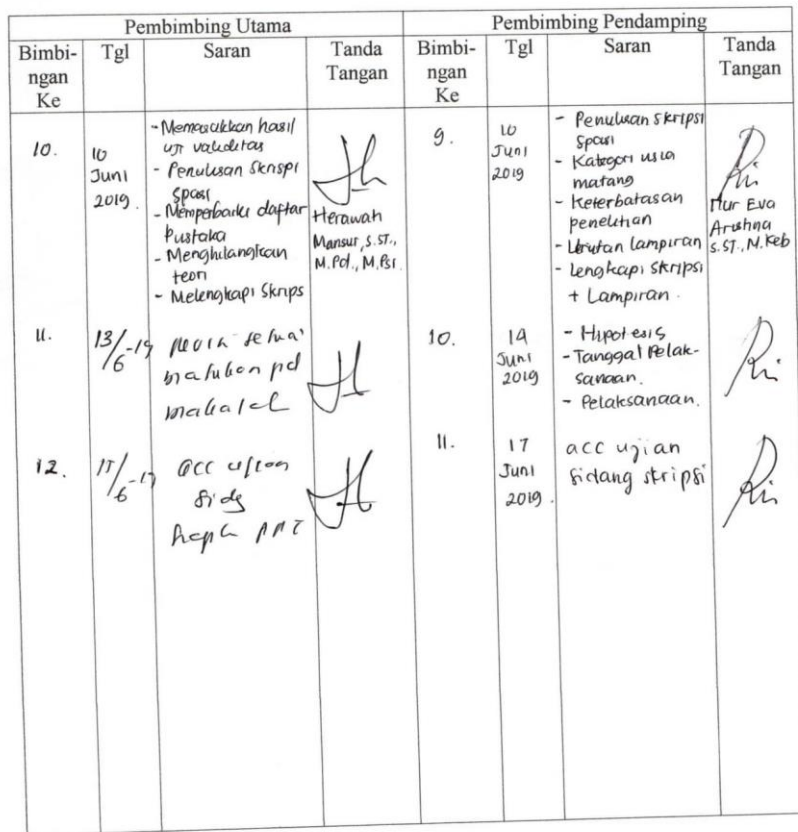 Pembimbing Utama
Pembimbing Pendamping
Bimbi-
ngan
Ke
Tgl
Saran
Tanda
Tangan
Bimbi-
ngan
Ke
Tgl
Saran
Tanda
Tangan
10.
10
Juni
2019.
- Memasukkan hasil
uji validitas
- Penulisan Skripsi
spasi
- Memperbaiki daftar
Pustaka
- Menghilangkan
teori
- Melengkapi Skrips
Herawati
Mansur, S.ST.,
M.Pd., M.Psi
9.
10
Juni
2019
- Penulisan skripsi
spasi
- Kategori usia
matang
- Keterbatasan
penelitian
- Urutan lampiran
- lengkapi skripsi
+ Lampiran.
Nur Eva
Aristina
S.ST., M.Keb
11.
13/6-19
revisi sesuai
pd
12.
17/6-19
acc ujian
sidg
PPT
10.
14
Juni
2019
- Hipotesis
- Tanggal Pelak-
sanaan.
- Pelaksanaan.
11.
17
Juni
2019.
acc ujian
sidang skripsi